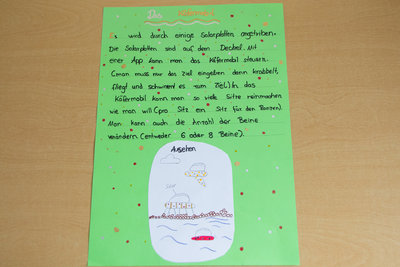 Das Käfermobil
Es wird durch einige Solarplatten angetrieben.
Die Solarplatten sind auf dem Deckel. Mit
einer App kann man das Käfermobil steuern.
(man muss nur das Ziel eingeben dann krabbelt,
fliegt und schwimmt es zum Ziel) In das
Käfermobil kann man so viele Sitze reinmachen
wie man will (pro Sitz ein Sitz für den Panzer).
Man kann auch die Anzahl der Beine
verändern (entweder 6 oder 8 Beine).
Aussehen